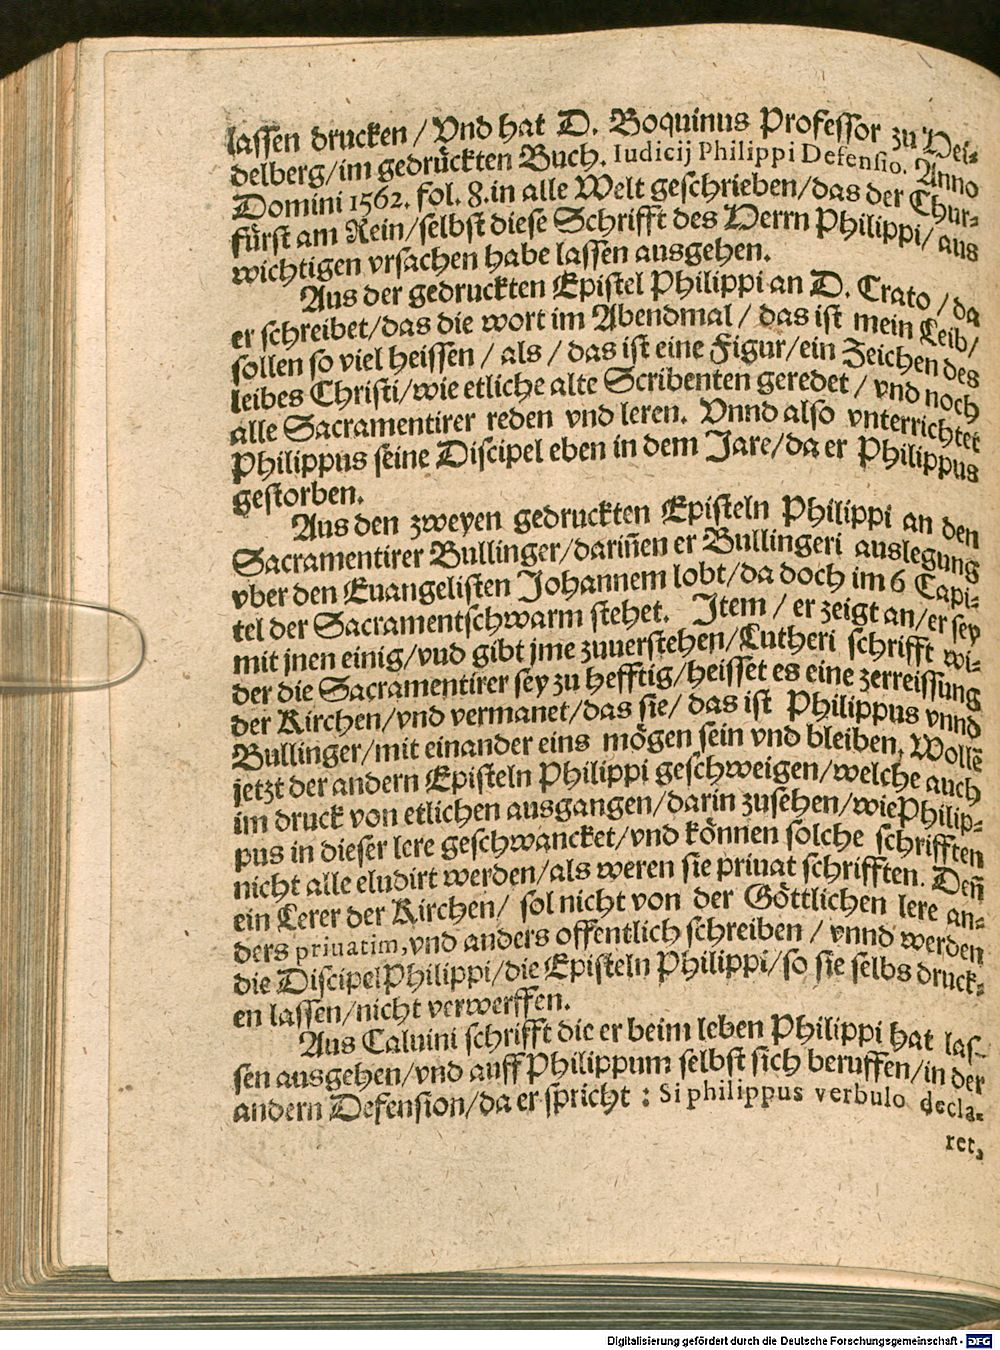 lassen drucken / Vnd hat D. Boquinus Professor zu Hei-
delberg/im gedrückten Buch. Iudicij Philippi Defensio. Anno
Domini 1562. fol. 8.in alle Welt geschrieben/das der Chur-
fürst am Rein/selbst diese Schrifft des Herrn Philippi/ aus
wichtigen vrsachen habe lassen ausgehen.
Aus der gedruckten Epistel Philippi an D. Crato / da
er schreibet/das die wort im Abendmal / das ist mein Leib/
sollen so viel heissen / als / das ist eine Figur/ein Zeichen des
leibes Christi/wie etliche alte Scribenten geredet / vnd noch
alle Sacramentirer reden vnd leren. Vnnd also vnterrichtet
Philippus seine Discipel eben in dem Jare/da er Philippus
gestorben.
Aus den zweyen gedruckten Episteln Philippi an den
Sacramentirer Bullinger/dariñen er Bullingeri auslegung
vber den Euangelisten Johannem lobt/da doch im 6 Capi-
tel der Sacramentschwarm stehet. Item / er zeigt an/er sey
mit jnen einig/vud gibt jme zuuerstehen/Lutheri schrifft wi-
der die Sacramentirer sey zu hefftig/heisset es eine zerreissung
der Kirchen/vnd vermanet/das sie/ das ist Philippus vnnd
Bullinger/mit einander eins mögen sein vnd bleiben. Wollē
jetzt der andern Episteln Philippi geschweigen/welche auch
im druck von etlichen ausgangen/darin zusehen/wiePhilip-
pus in dieser lere geschwancket/vnd können solche schrifften
nicht alle eludirt werden/als weren sie priuat schrifften. Deñ
ein Lerer der Kirchen/ sol nicht von der Göttlichen lere an-
ders priuatim,vnd anders offentlich schreiben / vnnd werden
die DiscipelPhilippi/die Episteln Philippi/so sie selbs druck-
en lassen/nicht verwerffen.
Aus Caluini schrifft die er beim leben Philippi hat las-
sen ausgehen/vnd auff Philippum selbst sich beruffen/in der
andern Defension/da er spricht : Si philippus verbulo decla-
ret,
Digitalisierung gefördert durch die Deutsche Forschungsgemeinschaft - DFG